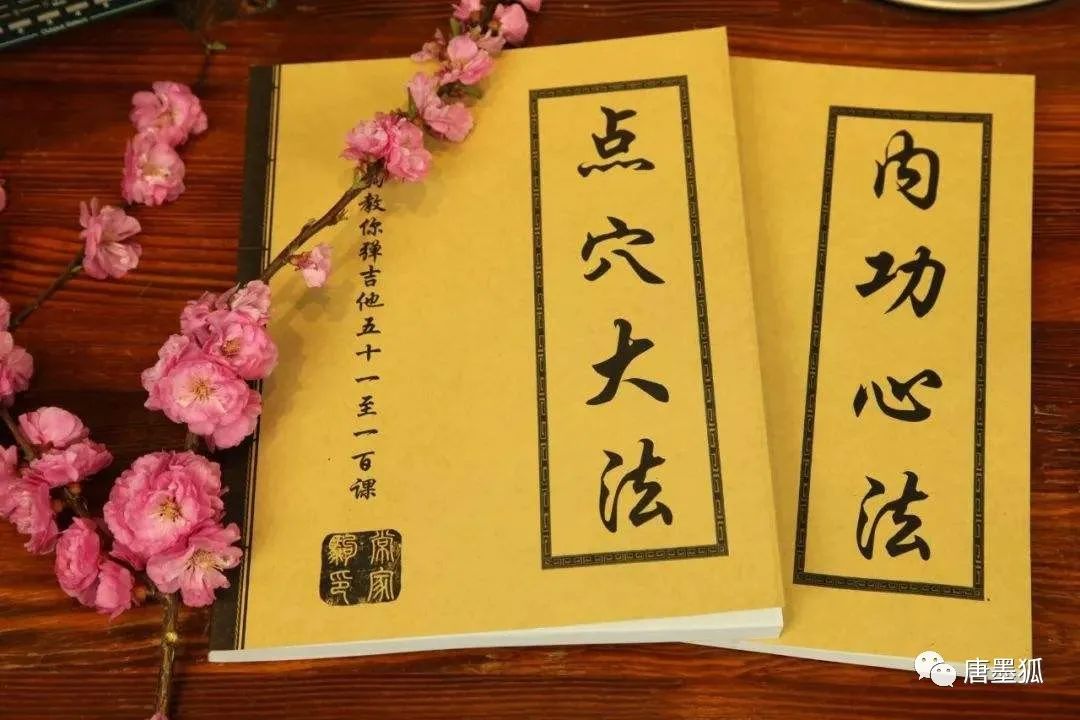 点穴大法
教你弹吉他五十一至一百课
常家
駒印
内功心法
唐墨狐